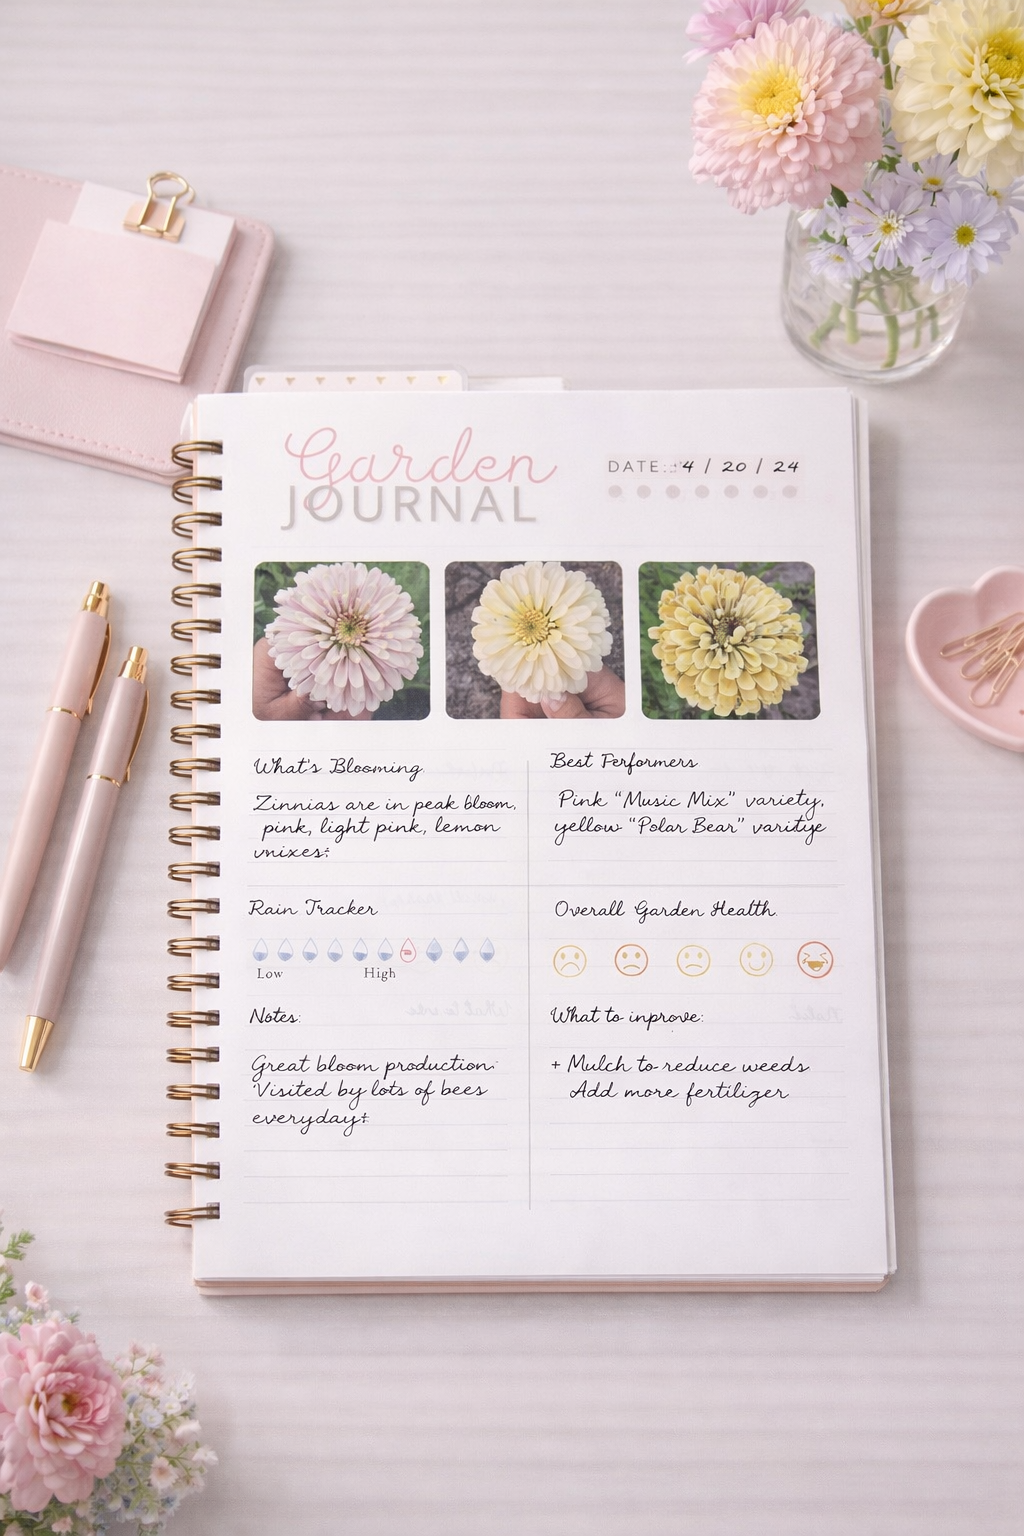 Garden
JOURNAL
DATE: 4 / 20 / 24
What's Blooming
Best Performers
Zinnias are in peak bloom,
pink, light pink, lemon
Pink "Music Mix" variety,
yellow "Polar Bear" varitye
Rain Tracker
Overall Garden Health
Low High
Notes:
What to inprove:
Great bloom production
Visited by lots of bees
everyday
+ Mulch to reduce weeds
Add more fertilizer